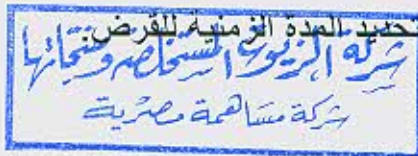 تحديد المدة الزمنية للقرض.
شركة الزيوت المستخلصة ومنتجاتها
شركة مساهمة مصرية